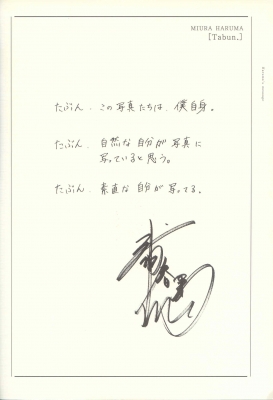 MIURA HARUMA
[Tabun.]
たぶん、この写真たちは、僕自身。
たぶん、自然な自分が写真に
写っていると思う。
たぶん、素直な自分が写ってる。